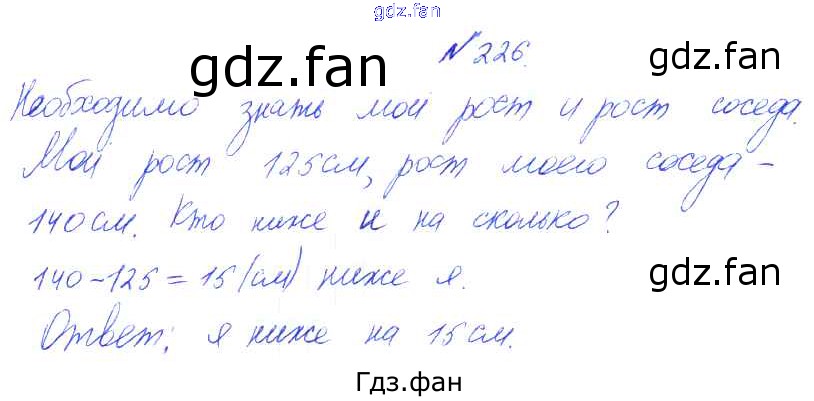 gdz.fan
№ 226.
gdz.fan
gdz.fan
Необходимо знать мой рост и рост соседа.
Мой рост 125 см, рост моего соседа –
140 см. Кто ниже и на сколько?
140-125=15 (см) ниже я.
gdz.fan
Ответ: я ниже на 15 см.
Гдз.фан